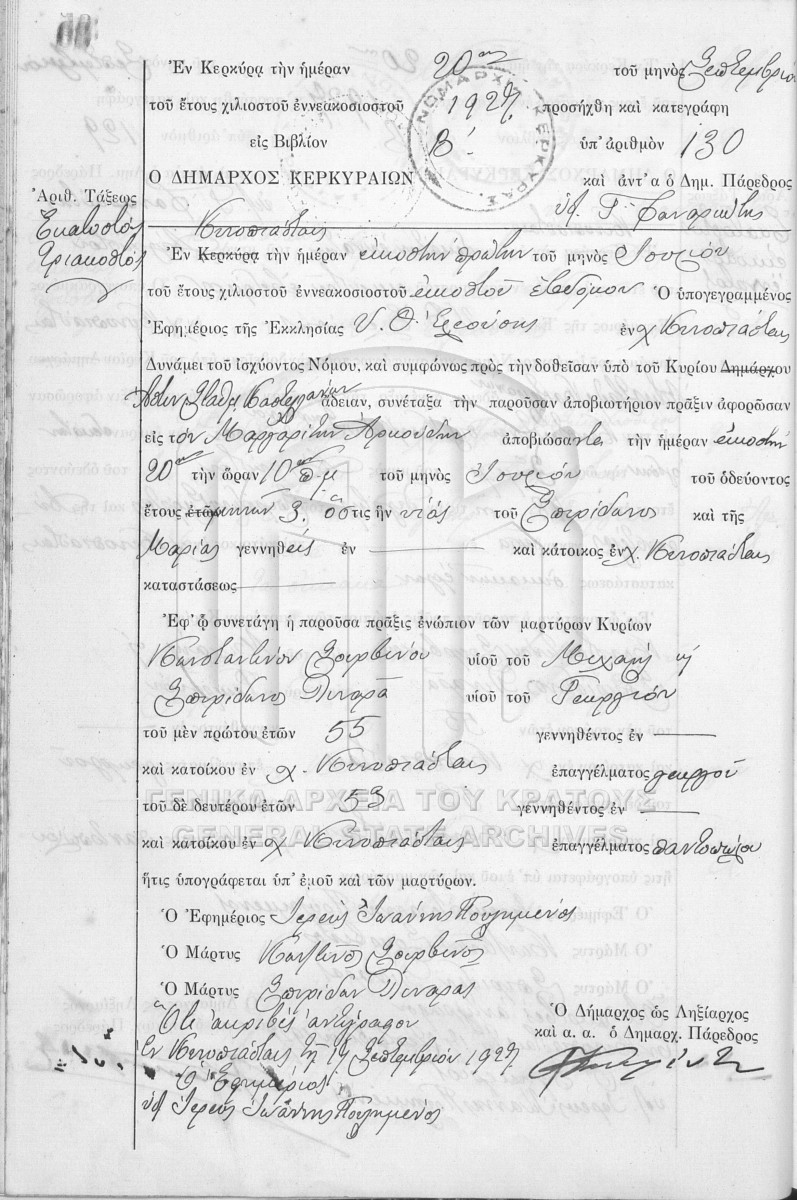 Ἐν Κερκύρᾳ τὴν ἡμέραν 20ην τοῦ μηνὸς Σεπτεμβρίου
τοῦ ἔτους χιλιοστοῦ ἐννεακοσιοστοῦ 1927 προσήχθη καὶ κατεγράφη
εἰς Βιβλίον Β' ὑπ' ἀριθμὸν 130
Ο ΔΗΜΑΡΧΟΣ ΚΕΡΚΥΡΑΙΩΝ καὶ ἀντ' α ὁ Δημ. Πάρεδρος
ΝΟΜΑΡΧ ΚΕΡΚΥΡΑΣ
Ἀριθ. Τάξεως
Ἑκατοστὸς
τριακοστὸς
Κυνοπιάσταις
Ἐν Κερκύρᾳ τὴν ἡμέραν εἰκοστὴν πρώτην τοῦ μηνὸς Ἰουνίου
τοῦ ἔτους χιλιοστοῦ ἐννεακοσιοστοῦ εἰκοστοῦ ἑβδόμου Ὁ ὑπογεγραμμένος
Ἐφημέριος τῆς Ἐκκλησίας Υ. Θ. Ἐλεούσης ἐν χ Κυνοπιάσταις
Δυνάμει τοῦ ἰσχύοντος Νόμου, καὶ συμφώνως πρὸς τὴν δοθεῖσαν ὑπὸ τοῦ Κυρίου Δημάρχου
Ἀστυν Σταθμ Καστελλάνων ἄδειαν, συνέταξα τὴν παροῦσαν ἀποβιωτήριον πρᾶξιν ἀφορῶσαν
εἰς τὸν Μαργαρίτην Ἀρκούδην ἀποβιώσαντα τὴν ἡμέραν εἰκοστὴν
20ην τὴν ὥραν 10 π.μ τοῦ μηνὸς Ἰουνίου τοῦ ὁδεύοντος
ἔτους ἐτῶν μηνῶν 3. ὅστις ἦν υἱὸς τοῦ Σπυρίδωνος καὶ τῆς
Μαρίας γεννηθεὶς ἐν καὶ κάτοικος ἐν χ. Κυνοπιάσταις
καταστάσεως
Ἐφ' ᾧ συνετάγη ἡ παροῦσα πρᾶξις ἐνώπιον τῶν μαρτύρων Κυρίων
Κωνσταντίνου Ζερβινοῦ υἱοῦ τοῦ Μιχαὴλ κ
Σπυρίδωνος Λιναρᾶ υἱοῦ τοῦ Γεωργίου
τοῦ μὲν πρώτου ἐτῶν 55 γεννηθέντος ἐν
καὶ κατοίκου ἐν χ. Κυνοπιάσταις ἐπαγγέλματος γεωργοῦ
ΓΕΝΙΚΑ ΑΡΧΕΙΑ ΤΟΥ ΚΡΑΤΟΥΣ
τοῦ δὲ δευτέρου ἐτῶν 53 γεννηθέντος ἐν
GENERAL STATE ARCHIVES
καὶ κατοίκου ἐν χ Κυνοπιάσταις ἐπαγγέλματος παντοπώλου
ἥτις ὑπογράφεται ὑπ' ἐμοῦ καὶ τῶν μαρτύρων.
Ὁ Ἐφημέριος Ἱερεὺς Ἰωάννης Πουλημένος
Ὁ Μάρτυς Κωνστῖνος Ζερβινὸς
Ὁ Μάρτυς Σπυρίδων Λιναρᾶς
Ὅτι ἀκριβὲς ἀντίγραφον
Ἐν Κυνοπιάσταις τῇ 14 Σεπτεμβρίου 1927
Ὁ Ἐφημέριος
ὑπ Ἱερεὺς Ἰωάννης Πουλημένος
Ὁ Δήμαρχος ὡς Ληξίαρχος
καὶ α. α. ὁ Δημαρχ. Πάρεδρος